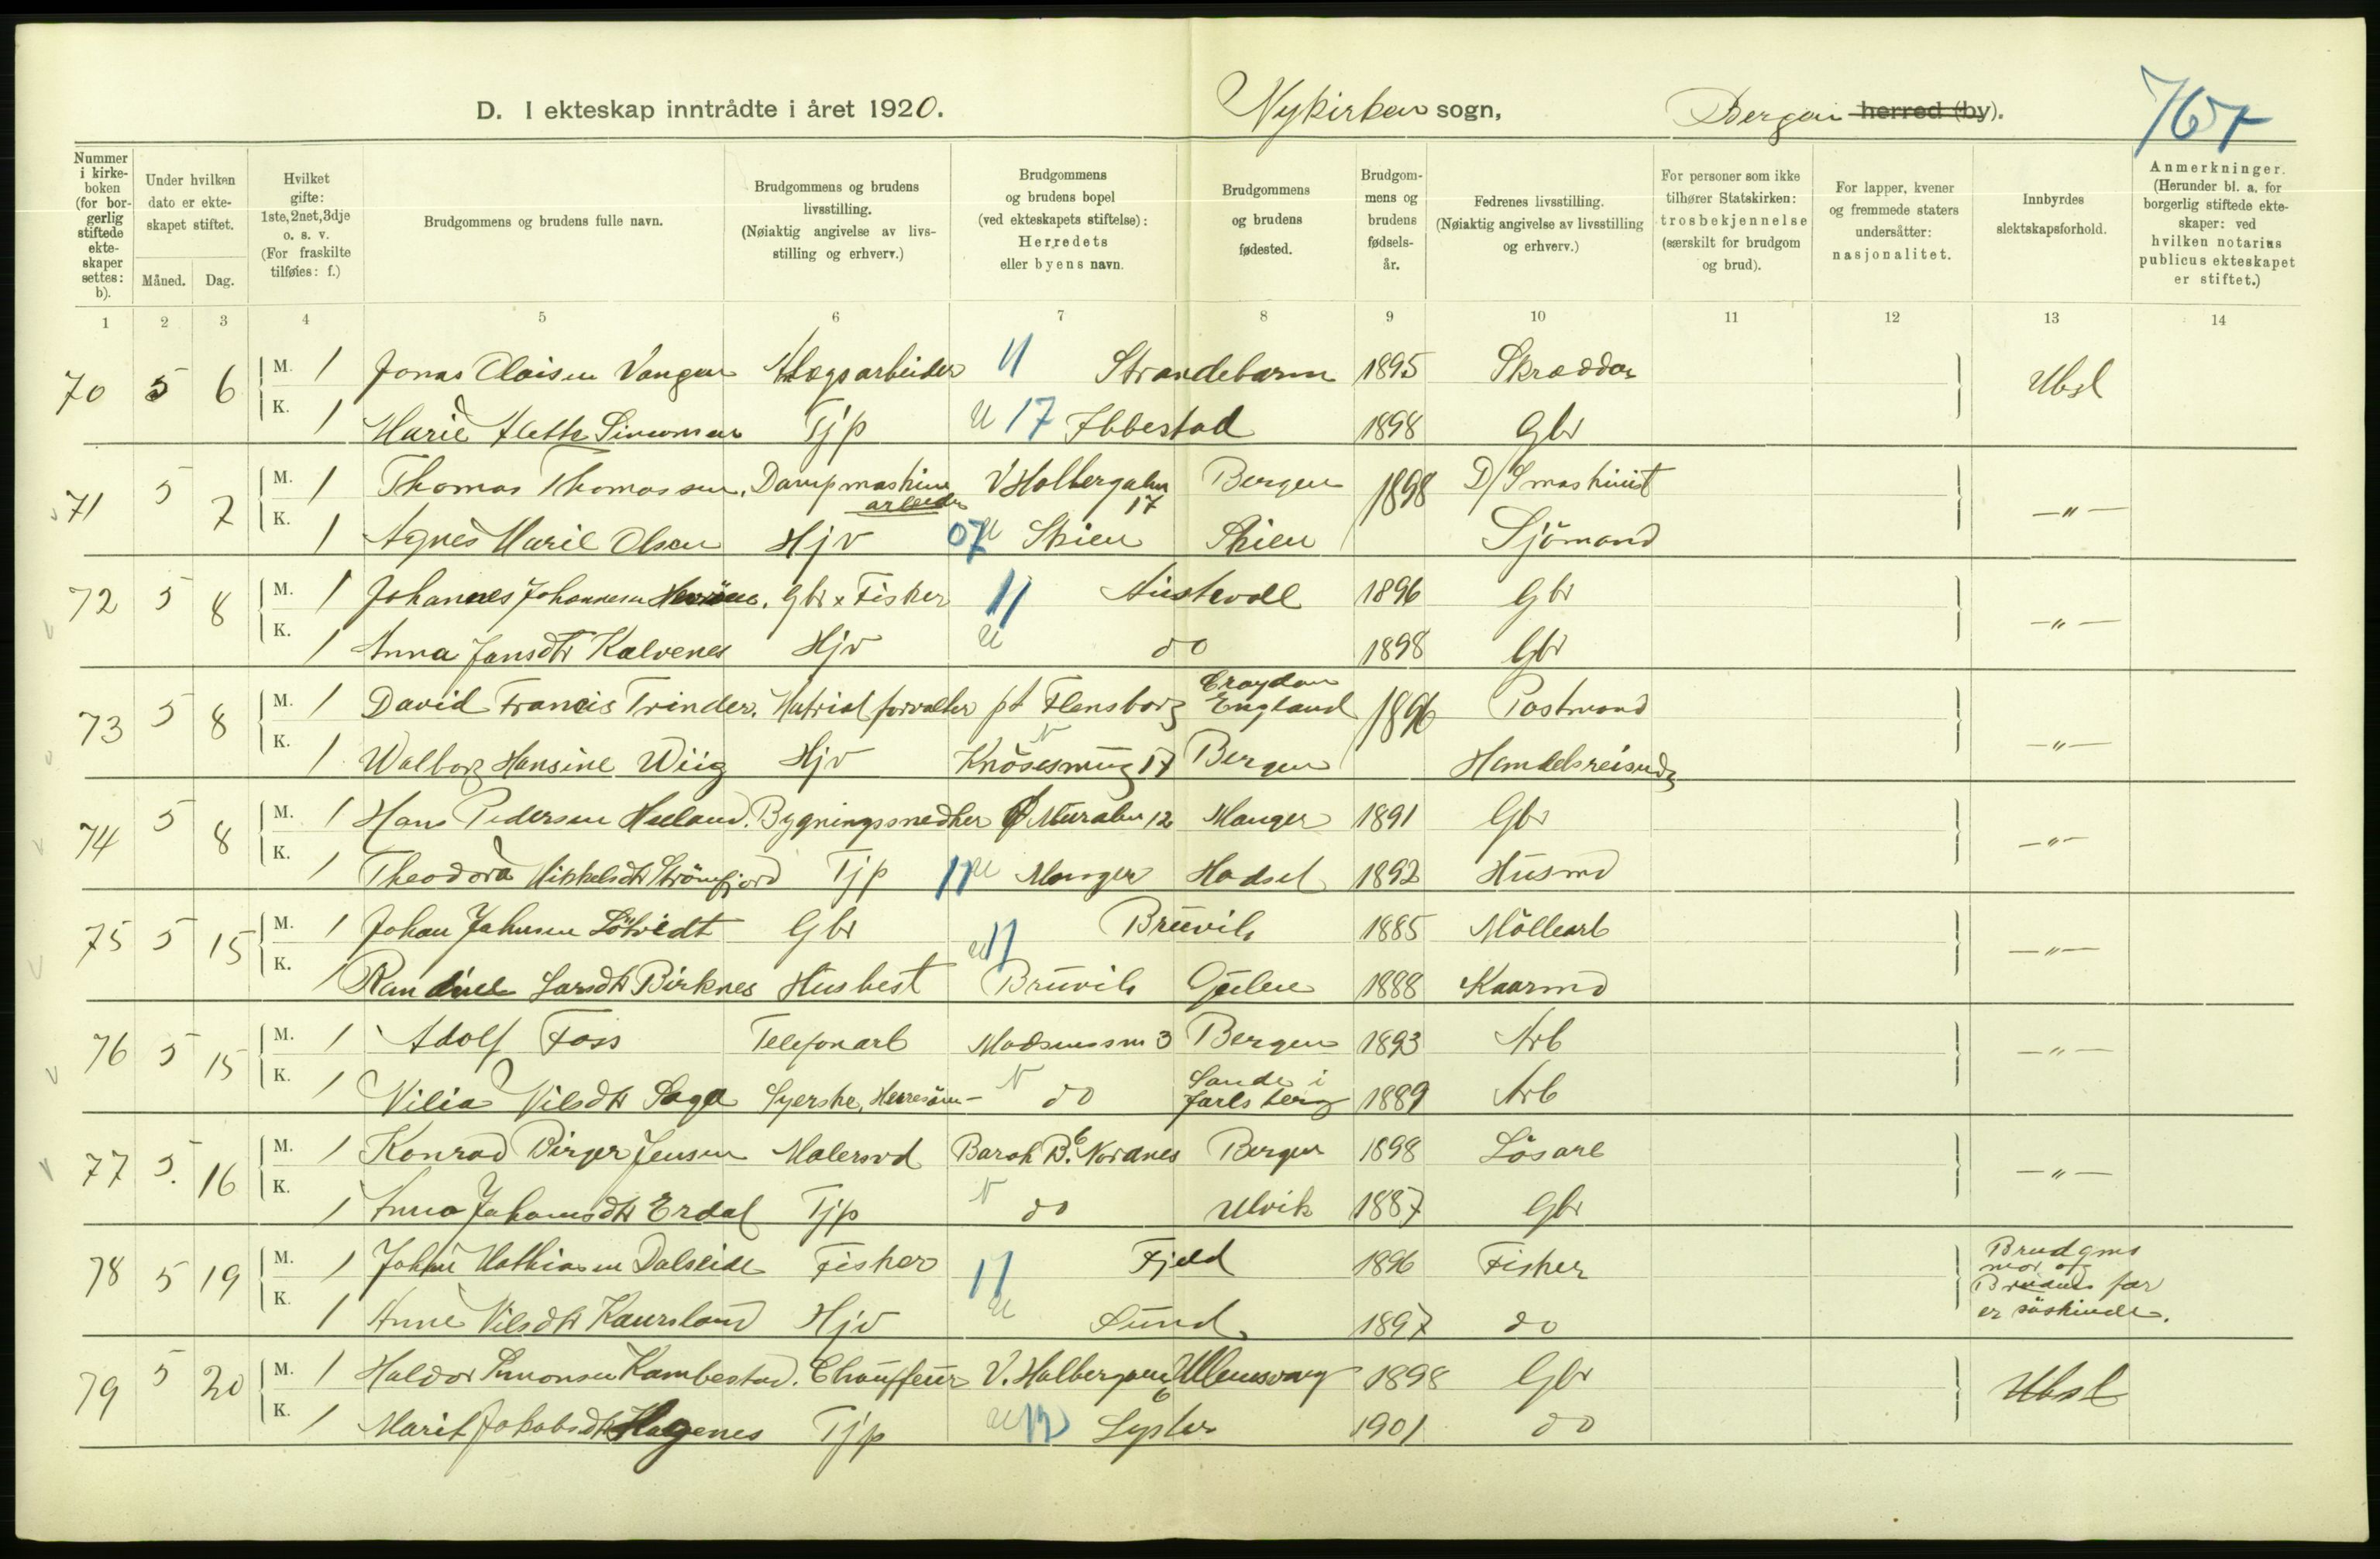 D. I ekteskap inntrådte i året 1920.
Nykirken sogn,
Bergen herred (by).
767
Nummer i kirkeboken (for borgerlig stiftede ekteskaper settes: b).
Under hvilken dato er ekteskapet stiftet.
Måned. Dag.
Hvilket gifte: 1ste, 2net, 3dje o. s. v. (For fraskilte tilføies: f.)
Brudgommens og brudens fulle navn.
Brudgommens og brudens livsstilling. (Nøiaktig angivelse av livsstilling og erhverv.)
Brudgommens og brudens bopel (ved ekteskapets stiftelse): Herredets eller byens navn.
Brudgommens og brudens fødested.
Brudgommens og brudens fødselsår.
Fedrenes livsstilling. (Nøiaktig angivelse av livsstilling og erhverv.)
For personer som ikke tilhører Statskirken: trosbekjennelse (særskilt for brudgom og brud).
For lapper, kvener og fremmede staters undersåtter: nasjonalitet.
Innbyrdes slektskapsforhold.
Anmerkninger. (Herunder bl. a. for borgerlig stiftede ekteskaper: ved hvilken notarius publicus ekteskapet er stiftet.)
1 2 3 4 5 6 7 8 9 10 11 12 13 14
70 5 6 M. 1 Jonas Olaisen Vangen lægsarbeider 11 Strandebarm 1895 Skrædder Ubsl
K. 1 Marie Alette Simonsen Tjp U 17 Ibbestad 1898 Gbr
71 5 7 M. 1 Thomas Thomassen. Dampmaskinarbeider V Holbergalm 17 Bergen 1898 D/S maskinist —"—
K. 1 Agnes Marie Olsen Hjv 07 U Skien Skien Sjömand
72 5 8 M. 1 Johannes Johannesen Gbr & Fisker 11 Austevoll 1896 Gbr —"—
K. 1 Anna Jansdtr Kalvenes Hjv U do 1898 Gbr
73 5 8 M. 1 David Francis Trinder. Matrialforvalter pt Flensborg Croydon England 1896 Postmand —"—
K. 1 Walborg Hansine Wiig Hjv N Knösesmug 17 Bergen Handelsreisende
74 5 8 M. 1 Hans Pedersen Heeland. Bygningssnedker Ø Muralm 12 Manger 1891 Gbr —"—
K. 1 Theodora Mikkelsdtr Strömfjord Tjp 11 U Manger Hadsel 1892 Husmd
75 5 15 M. 1 Johan Johnsen Lötveit Gbr Bruvik 1885 Möllearb —"—
K. 1 Randine Larsdtr Birknes Husbest U 11 Bruvik Gulen 1888 Kaarmd
76 5 15 M. 1 Adolf Foss Telefonarb Madsensm 3 Bergen 1893 Arb —"—
K. 1 Nilia Nilsdtr Saga Syerske, Herresöm- N do Sande i Jarlsberg 1889 Arb
77 5. 16 M. 1 Konrad Birger Jensen Malersvd Barak B. 6 Nordnes Bergen 1898 Lösarb —"—
K. 1 Anna Johannesdtr Erdal Tjp N do Ulvik 1887 Gbr
78 5 19 M. 1 Johan Mathiasen Dalseide Fisker 11 Fjeld 1896 Fisker Brudgms mor og Brudens far er söskinde.
K. 1 Anne Nilsdtr Kaursland Hjv U Sund 1897 do
79 5 20 M. 1 Haldor Simonsen Kambestad. Chauffeur V. Holbergsalm 6 Ullensvang 1898 Gbr Ubsl
K. 1 Marit Jakobsdtr Hagenes Tjp U 12 Lyster 1901 do